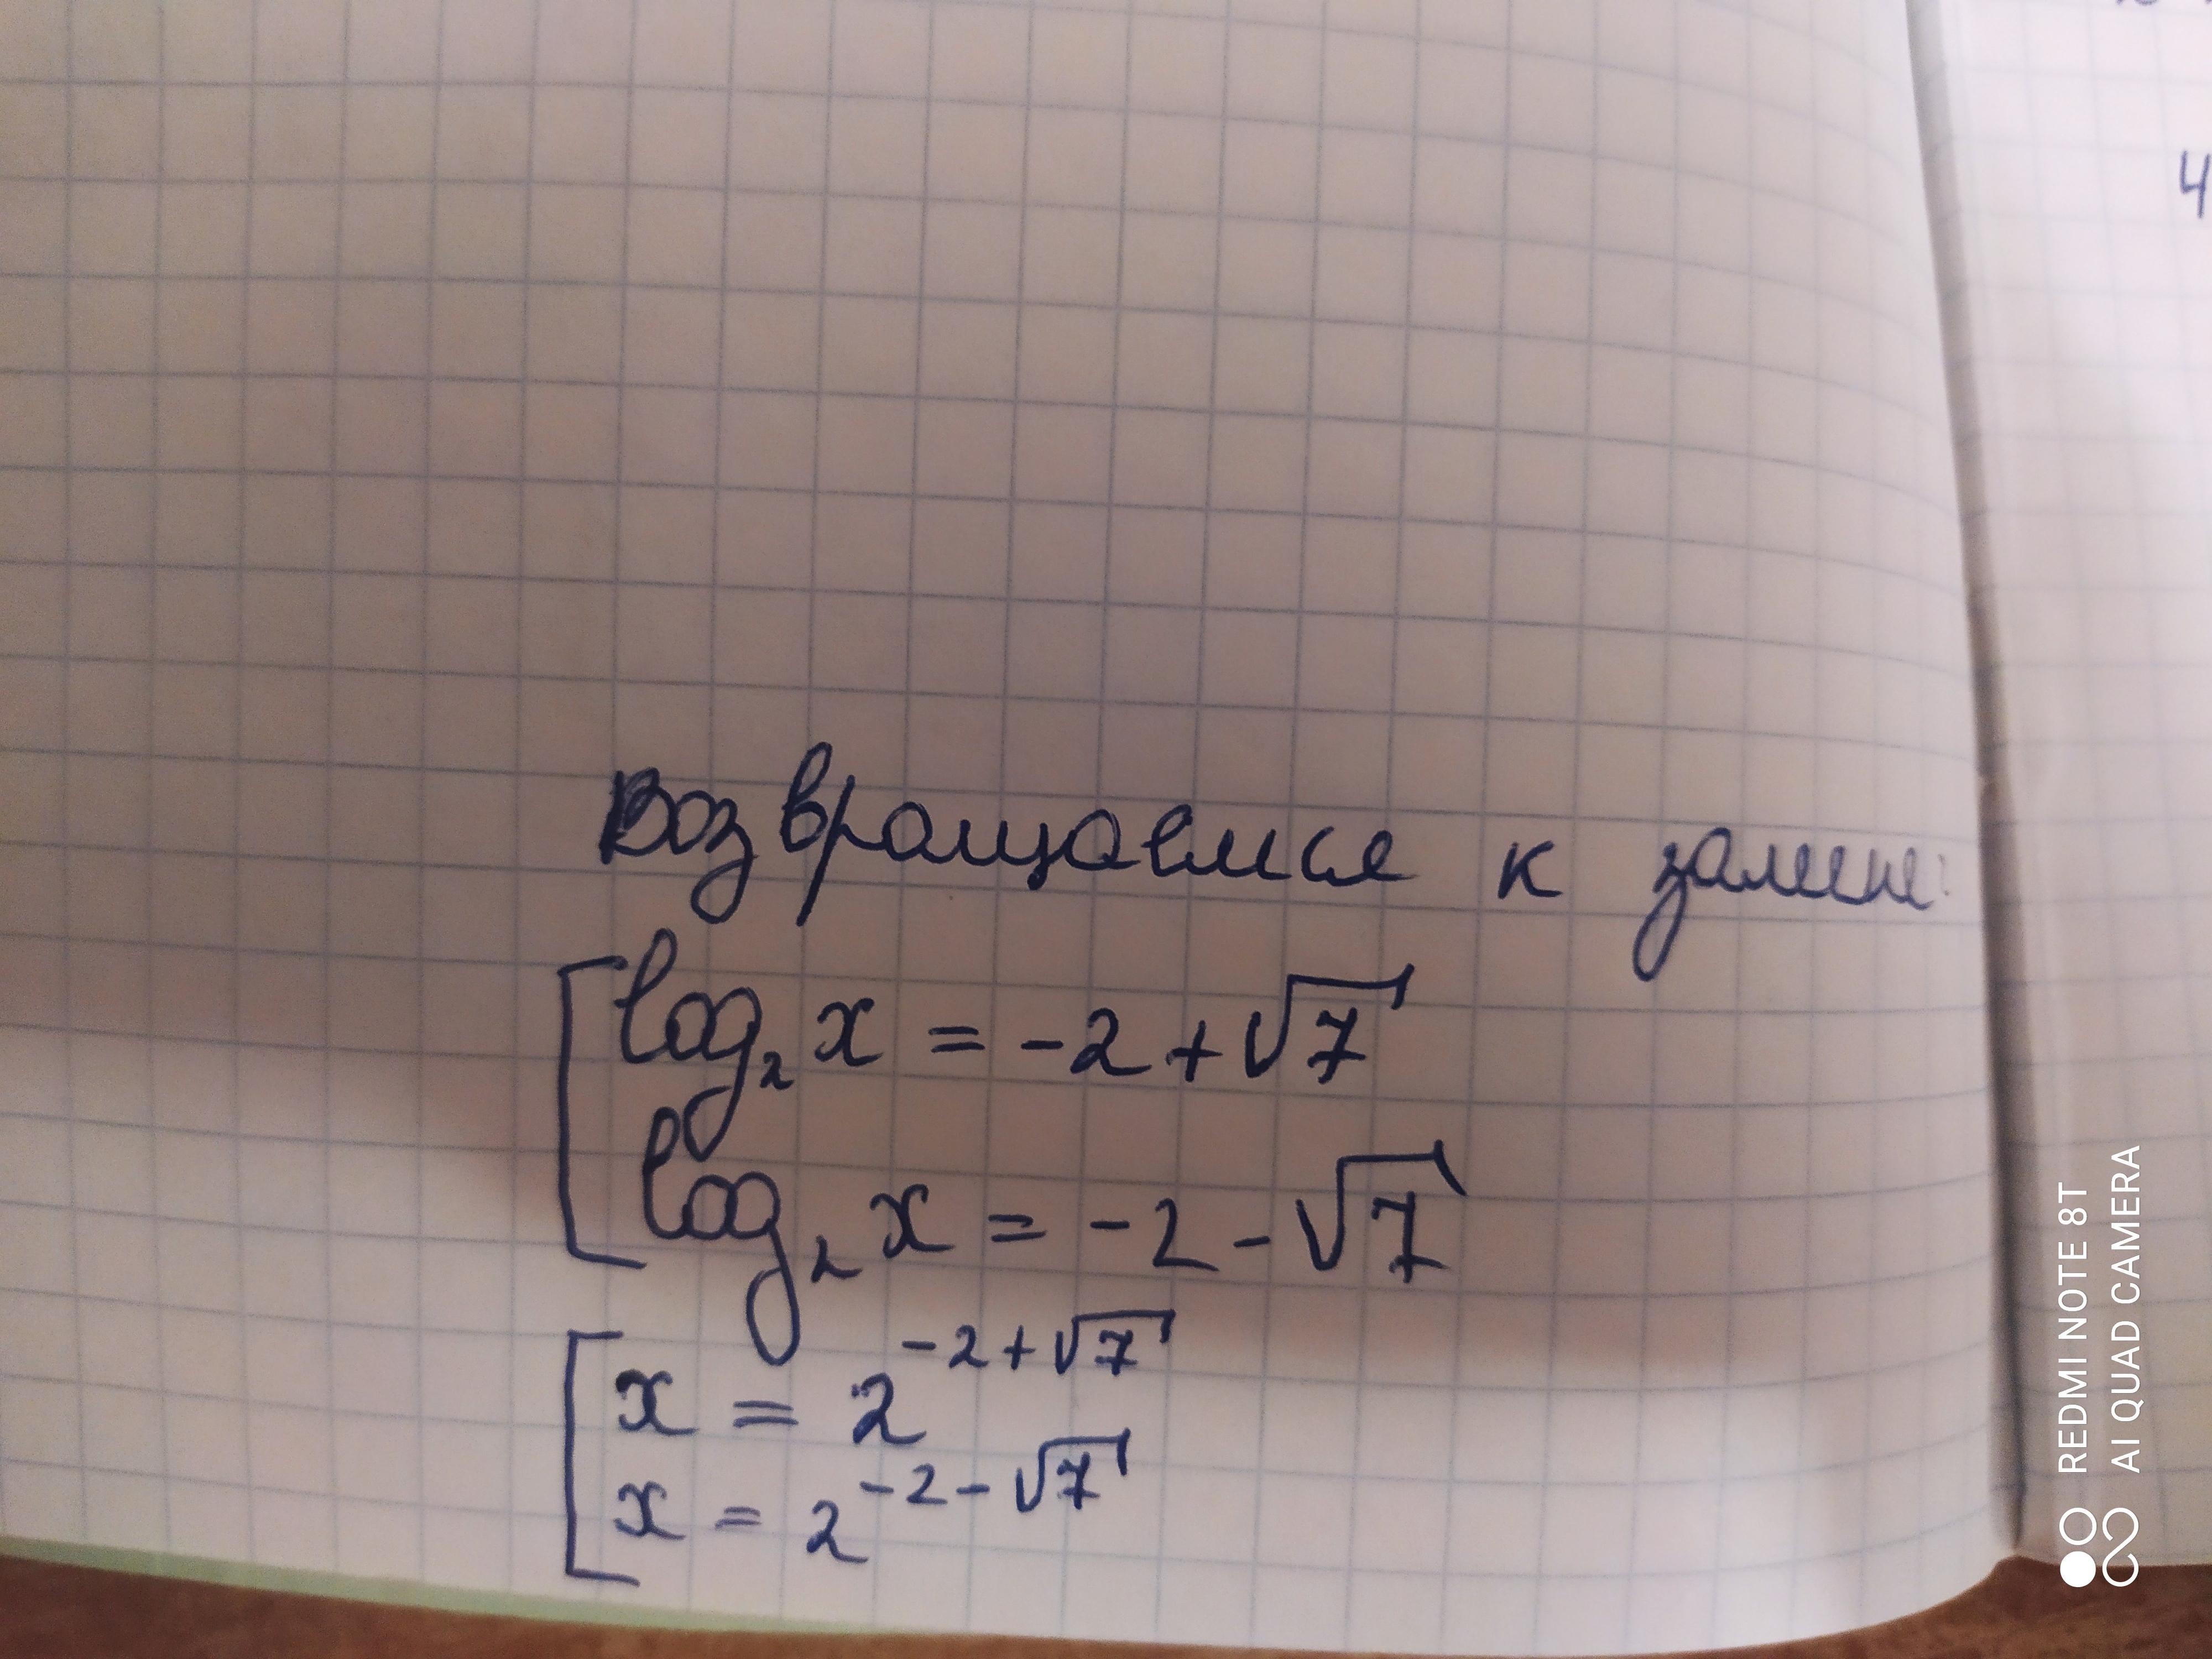 Возвращаемся к замене:
log₂ x = -2 + √7
log₂ x = -2 - √7
x = 2^(-2+√7)
x = 2^(-2-√7)
4
REDMI NOTE 8T
AI QUAD CAMERA